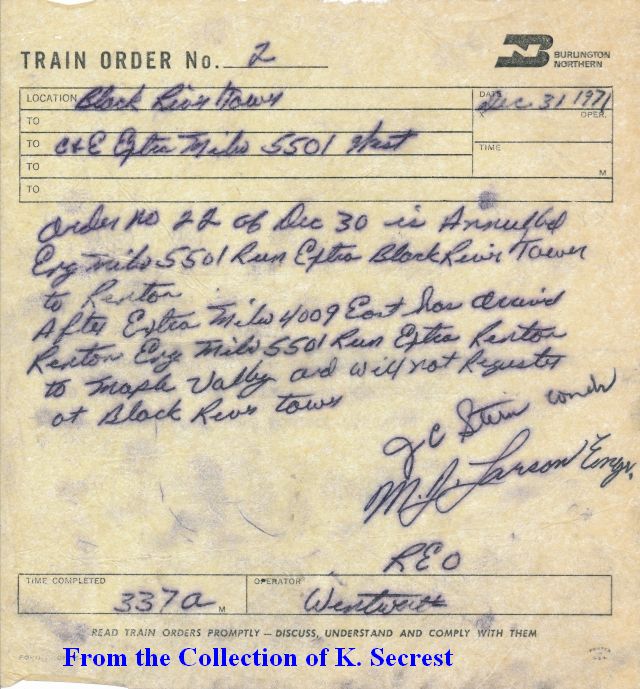 TRAIN ORDER No. 2
BURLINGTON
NORTHERN
LOCATION Black River Tower
DATE Dec 31 1971
TO
X OPER.
TO C&E Extra Milw 5501 West
TIME
TO
M
TO
Order No 22 of Dec 30 is Annulled
Eng Milw 5501 Run Extra Black River Tower
to Renton
After Extra Milw 4009 East has arrived
Renton Eng Milw 5501 Run Extra Renton
to Maple Valley and will not Register
at Black River Tower
J C Stein condr
M. D. Larson Engr.
REO
TIME COMPLETED 337a M
OPERATOR Wentworth
READ TRAIN ORDERS PROMPTLY — DISCUSS, UNDERSTAND AND COMPLY WITH THEM
From the Collection of K. Secrest